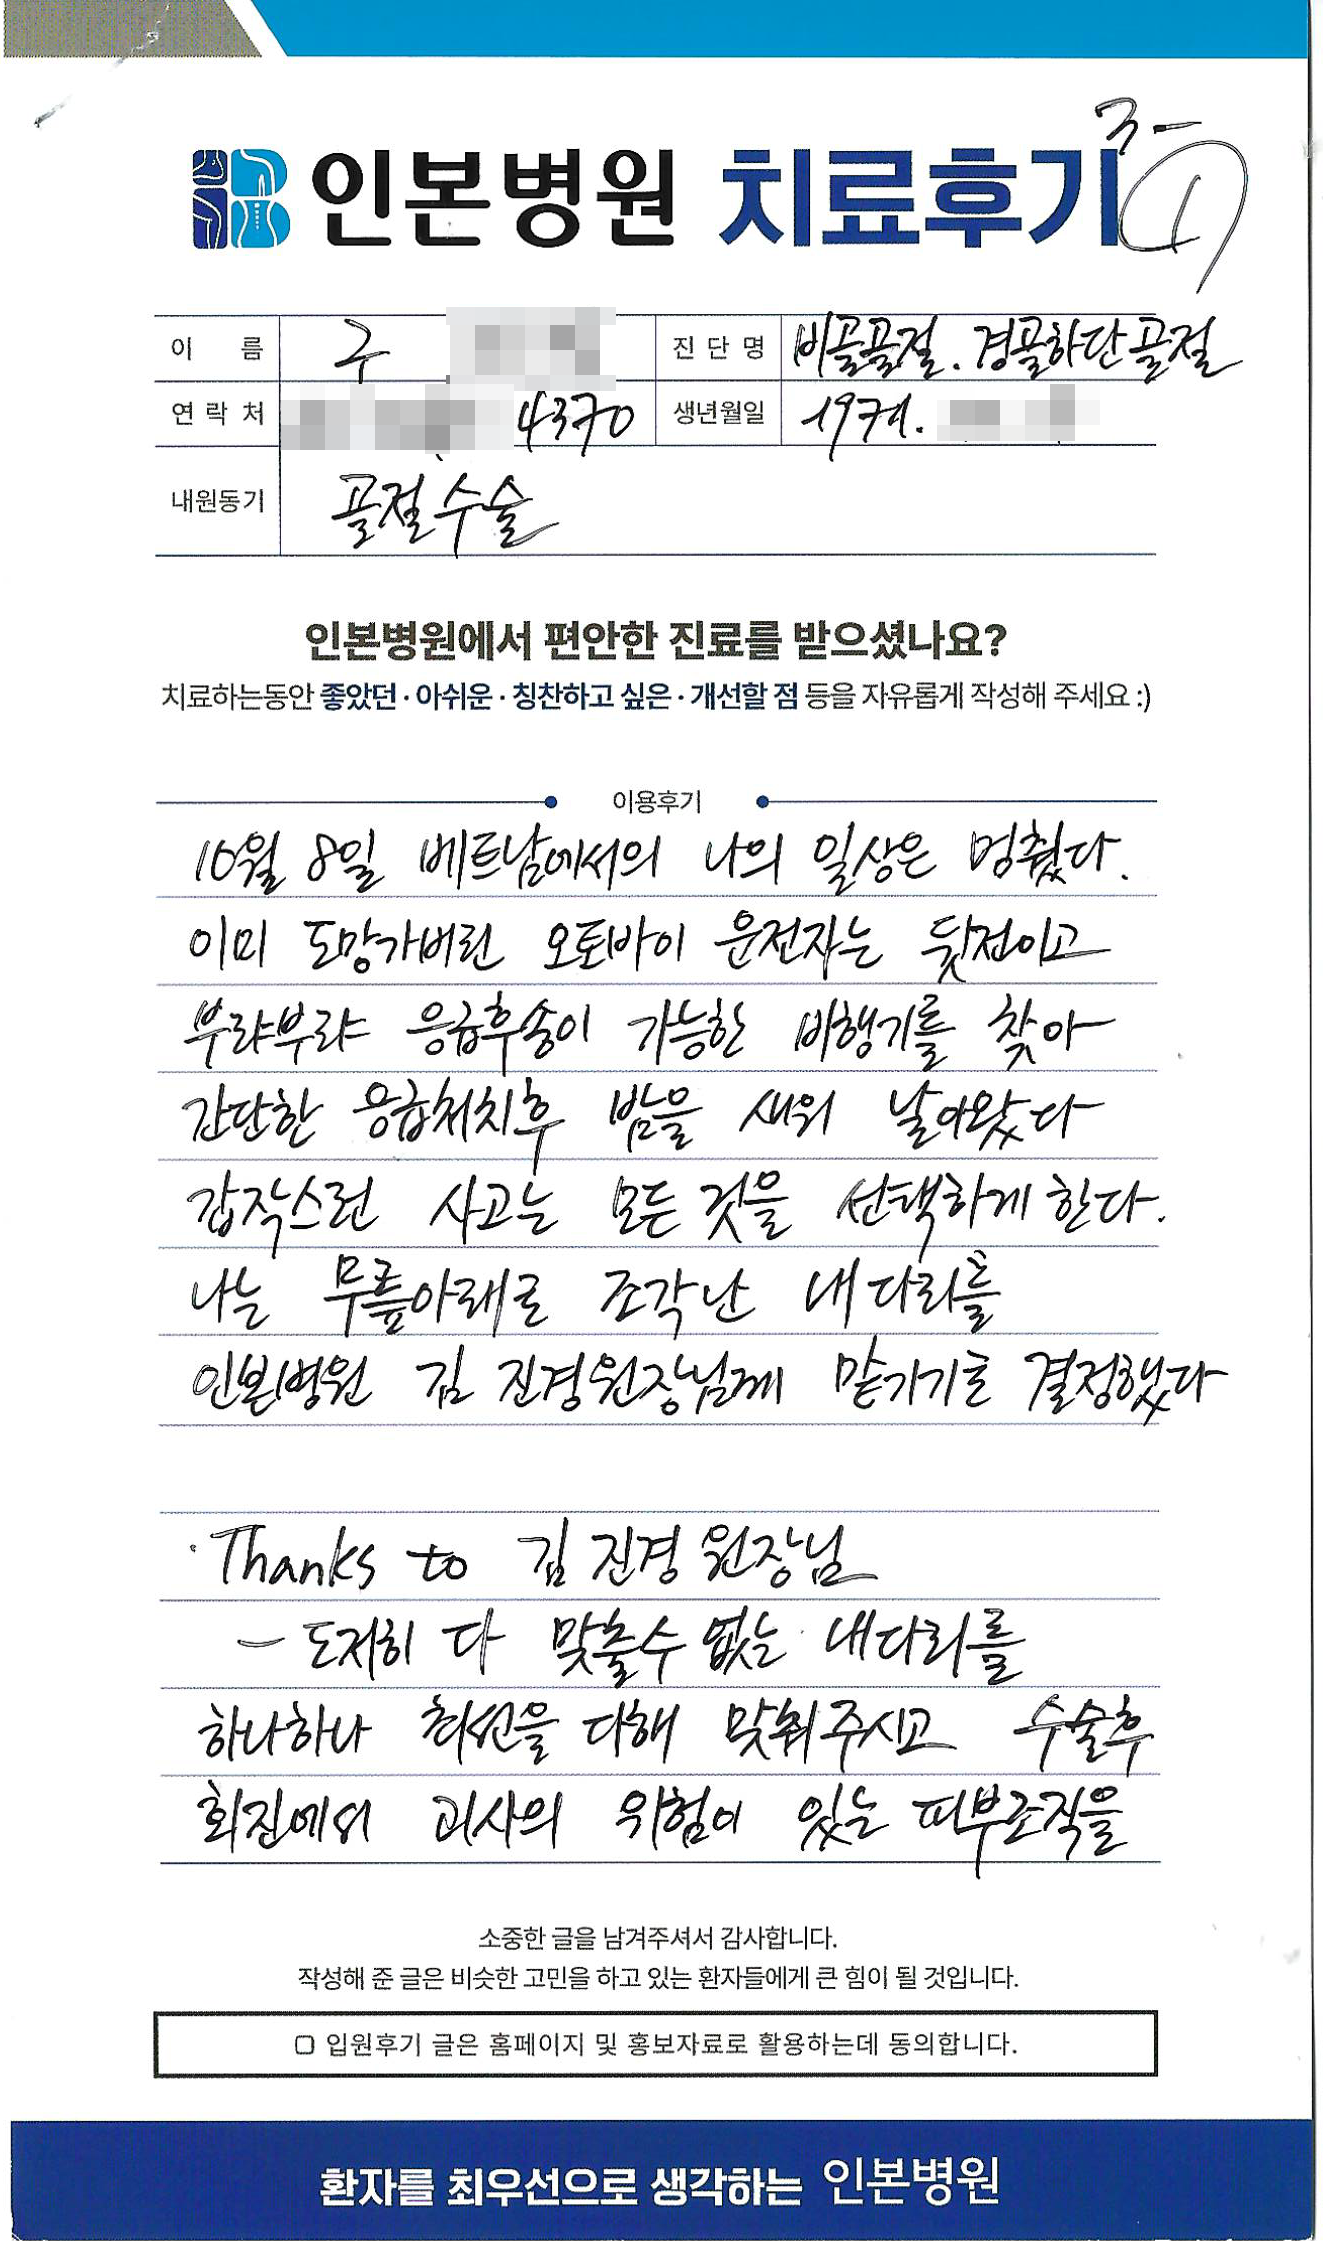 3-①
인본병원 치료후기
이 름 구 진단명 비골골절. 경골하단골절
연락처 4370 생년월일 1971.
내원동기 골절수술
인본병원에서 편안한 진료를 받으셨나요?
치료하는동안 좋았던 · 아쉬운 · 칭찬하고 싶은 · 개선할 점 등을 자유롭게 작성해 주세요 :)
이용후기
10월 8일 베트남에서의 나의 일상은 멈췄다.
이미 도망가버린 오토바이 운전자는 뒷전이고
부랴부랴 응급후송이 가능한 비행기를 찾아
간단한 응급처치후 밤을 새워 날아왔다
갑작스런 사고는 모든것을 선택하게 한다.
나는 무릎아래로 조각난 내다리를
인본병원 김진경원장님께 맡기기로 결정했다
·Thanks to 김진경 원장님
- 도저히 다 맞출수 없는 내다리를
하나하나 최선을 다해 맞춰주시고 수술후
회진에서 괴사의 위험이 있는 피부조직을
소중한 글을 남겨주셔서 감사합니다.
작성해 준 글은 비슷한 고민을 하고 있는 환자들에게 큰 힘이 될 것입니다.
▢ 입원후기 글은 홈페이지 및 홍보자료로 활용하는데 동의합니다.
환자를 최우선으로 생각하는 인본병원